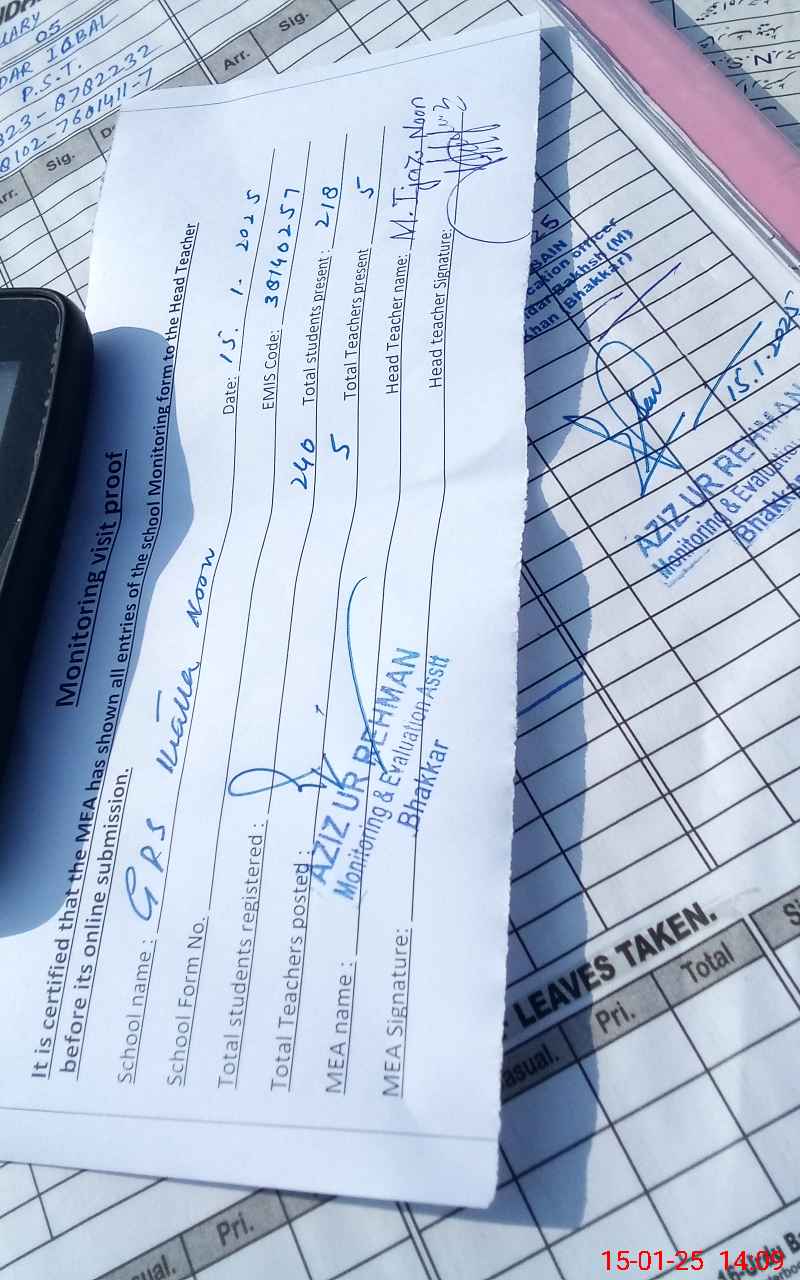 Monitoring visit proof
It is certified that the MEA has shown all entries of the school Monitoring form to the Head Teacher
before its online submission.
School name : GPS Noon Date: 15. 1. 2025
School Form No. EMIS Code: 38140257
Total students registered : 240 Total students present : 218
Total Teachers posted : 5 Total Teachers present 5
MEA name : Head Teacher name: M. Ijaz Noon
MEA Signature: Head teacher Signature:
AZIZ UR REHMAN
Monitoring & Evaluation Asstt
Bhakkar
05
IQBAL
P.S.T.
8782232
0102-7601411-7
Arr. Sig.
Sig.
25
officer
Bakhsh (M)
Khan (Bhakkar)
15.1.2025
AZIZ UR REHMAN
Monitoring & Evaluation
Bhakkar
LEAVES TAKEN.
Pri. Total
Pri.
15-01-25 14:09